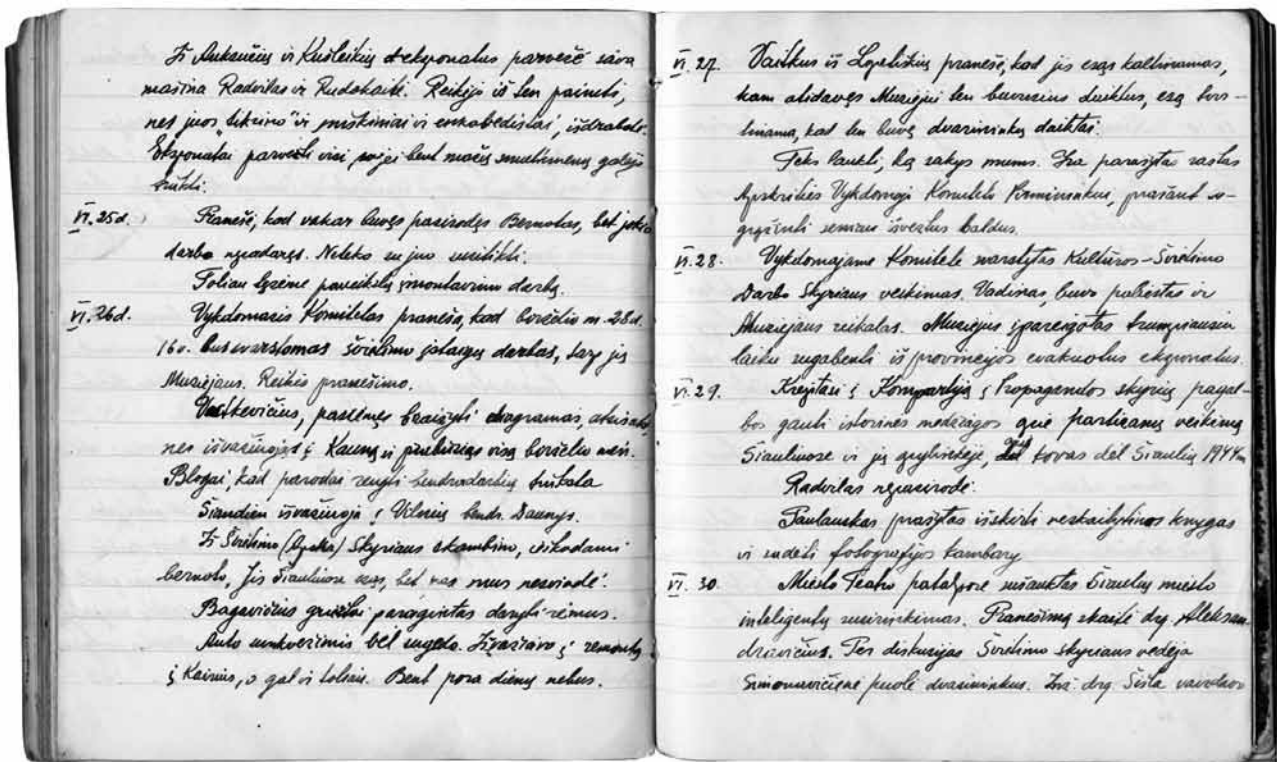 Iš Auksučių ir Kušleikių eksponatus parvežė savo
mašina Radvilas ir Rudokaitė. Reikėjo iš ten paimti,
nes juos „tikrino“ ir miškiniai ir enkabedistai, išdrabstė.
Eksponatai parvežti visi, vojei bent mažų smulkmenų galėjo
trūkti.
VI. 25 d. Pranešė, kad vakar buvęs pasirodęs Bernotas, bet jokio
darbo nepadaręs. Neteko su juo susitikti.
Toliau tęsėme paveikslų įmontavimo darbą.
VI. 26 d. Vykdomasis Komitetas pranešė, kad birželio m. 28 d.
16 v. bus svarstomas švietimo įstaigų darbas, tarp jų
Muziejaus. Reikės pranešimo.
Vaitkevičius, pasiėmęs braižyti diagramas, atsisakė,
nes išvažiuojąs į Kauną ir prabūsiąs visą birželio mėn.
Blogai, kad parodai rengti bendradarbių trūksta
Šiandien išvažiuoja į Vilnių bendr. Daunys.
Iš Švietimo (Apskr.) Skyriaus skambino, ieškodami
bernoto. Jis Šiauliuose esąs, bet pas mus nesirodė.
Bagavičius griežtai paragintas daryti rėmus.
Auto sunkvežimis vėl sugedo. Išvažiavo į remontą
į Kairius, o gal ir toliau. Bent porą dienų nebus.
VI. 27. Vaitkus iš pranešė, kad jis esąs kaltinamas,
kam atidavęs Muziejui ten buvusius daiktus, esą tvir-
tinama, kad ten buvę dvarininkų daiktai.
Teks laukti, ką sakys mums. Yra parašytas raštas
Apskrities Vykdomojo Komiteto Pirmininkui, prašant su-
grąžinti seniau išvežtus baldus.
VI. 28. Vykdomajame Komitete svarstytas Kultūros-Švietimo
Darbo Skyriaus veikimas. Vadinas, buvo paliestas ir
Muziejaus reikalas. Muziejus įpareigotas trumpiausiu
laiku sugabenti iš provincijos evakuotus eksponatus.
VI. 29. Kreiptasi į Kompartiją į Propagandos skyrių pagal-
bos gauti istorinės medžiagos apie partizanų veikimą
Šiauliuose ir jų apylinkėje, kovas dėl Šiaulių 1944 m.
Radvilas nepasirodė.
Paulauskas prašytas išskirti neskaitytinas knygas
ir sudėti fotografijos kambary
VI. 30. Miesto Teatro patalpose sušauktas Šiaulių miesto
inteligentų susirinkimas. Pranešimą skaitė drg. Aleksan-
dravičius. Per diskusijas Švietimo skyriaus vedėja
Simonavičienė puolė dvasininkus. drg. Šista